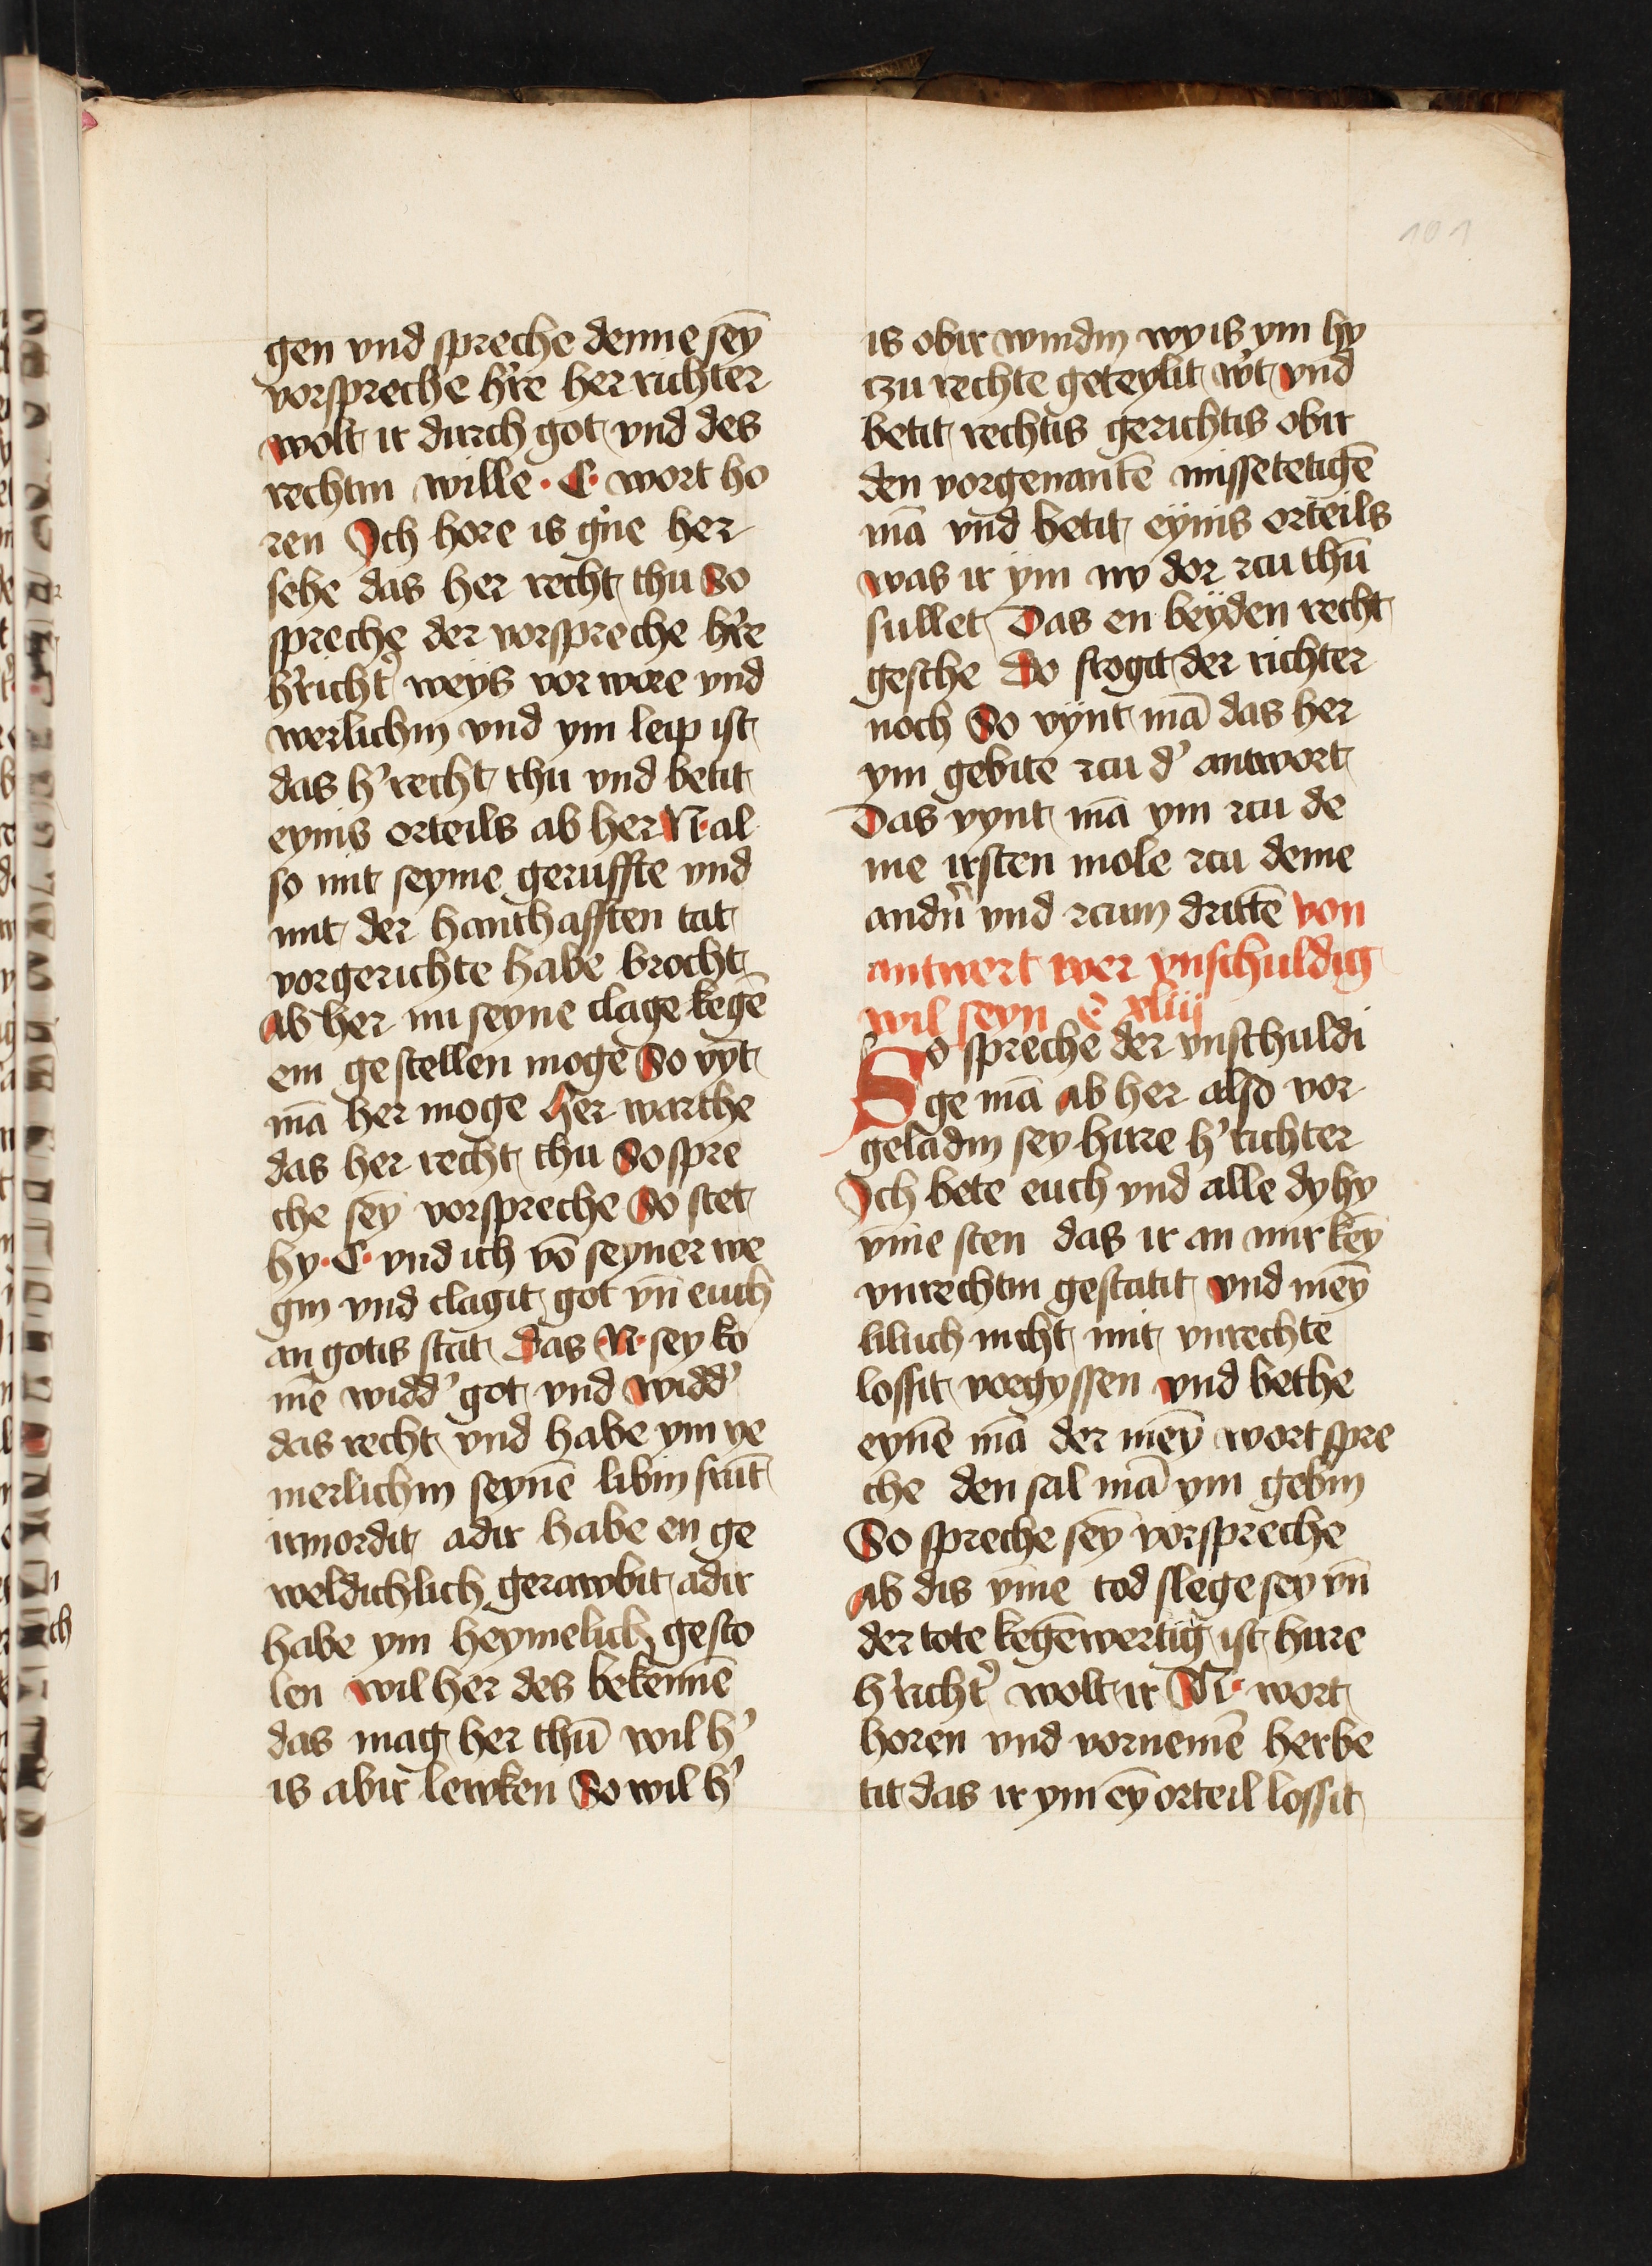 gen vnd spreche denne sey̅
vorspreche h're her richter
wolt ir durch got vnd des
rechtin wille · C · wort ho
ren Ich hore is g'ne her
sehe das her recht thu So
spreche der vorspreche h're
h'richt' weÿs vor wore vnd
werlichin vnd ym leip ist
das h' recht thu vnd betit
eynis orteils ab her N · al
so mit seyme geruffte vnd
mit der hanthafften tat
vorgerichte habe brocht
Ab her nu seyne clage kege̅
em gestellen moge So vy̅t
ma̅ her moge her warthe
das her recht thu So spre
che sey̅ vorspreche So stet
hy · C · vnd ich vo̅ seyner we
gin vnd clagit got vn̅ euch
an gotis stat das · N · sey ko
me̅ widd' got vnd widd'
das recht vnd habe ym ye
merlichin seyne̅ libin frūt
irmordit adir habe en ge
weldichlich gerawbit adir
habe ym heymelich gesto
len wil her des bekenne̅
das mag her thu̅ wil h'
is abir lewken So wil h'
is obir windin wy is ym hy
tzu rechte geteylit w't vnd
betit rechtis gerichtis obir
den vorgenante̅ missetetige̅
ma̅ vnd betit eÿnis orteils
was ir ÿm nv dor zcu thu̅
sullet Das en beÿden recht
gesche do frogit der richter
noch So vÿnt ma̅ das her
ym gebite zcu d' antwort
Das vynt ma̅ ym zcu de
me irsten mole zcu deme
andn̅ vnd zcum dritte̅ von
antwert wer vnschuldig
wil seyn c̅ xliij
So spreche der vnschuldi
ge ma̅ ab her also vor
geladin sey hure h' richter
Ich bete euch vnd alle dy hy
vm̅e sten das ir an mir key̅
vnrechtin gestatit vnd mey̅
bluch nicht mit vnrechte
lossit vorgyssen vnd bethe
eyne̅ ma̅ der mey̅ wort spre
che den sal ma̅ ym gebin
So spreche sey̅ vorspreche
ab dis vm̅e tod slege sey vn̅
der tote kege̅wertig ist hure
h'richt' wolt ir N · wort
horen vnd vorneme̅ her be
tit das ir ym ey̅ orteil lossit
101